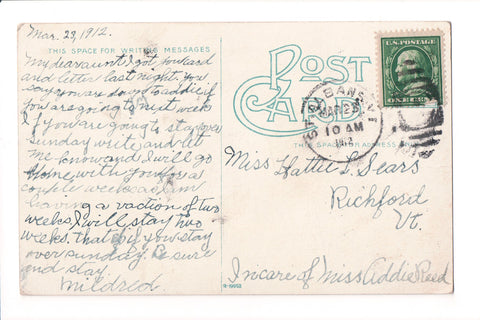 Mar. 23, 1912.
THIS SPACE FOR WRITING MESSAGES
My dear aunt I got your card
and letter last night. You
say you are down to addies if
you are going to next week
If you are going to stay over
Sunday write and let
me know and I will go
home with you for a
couple weeks as I am
having a vaction of two
weeks I will stay two
weeks. that is if you stay
over sunday. Be sure
and stay.
Mildred.
POST
CARD
THIS SPACE FOR ADDRESS
U.S. POSTAGE
ST. ALBANS, VT.
MAR 23
10 AM
1912
Miss Hattie L. Sears
Richford
Vt.
In care of Miss Addie Reed